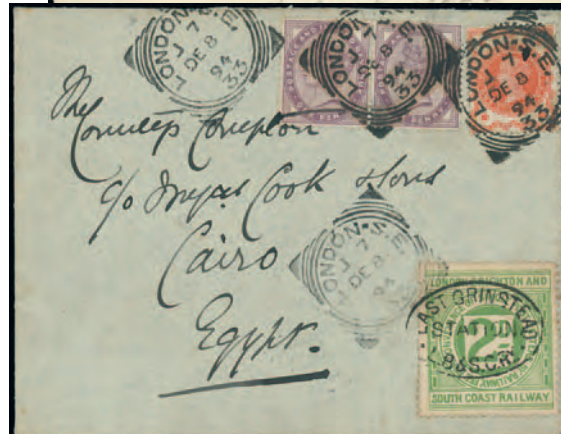 LONDON·S.E.
J 7
DE 8
94
33
LONDON·S.E.
J 7
DE 8
94
33
LONDON·S.E.
J 7
DE 8
94
33
The
c/o Cook &
Cairo
Egypt.
LONDON·S.E.
J 7
DE 8
94
LONDON BRIGHTON AND
EAST GRINSTEAD
STATION
2D
L.B&S.C.RY.
SOUTH COAST RAILWAY